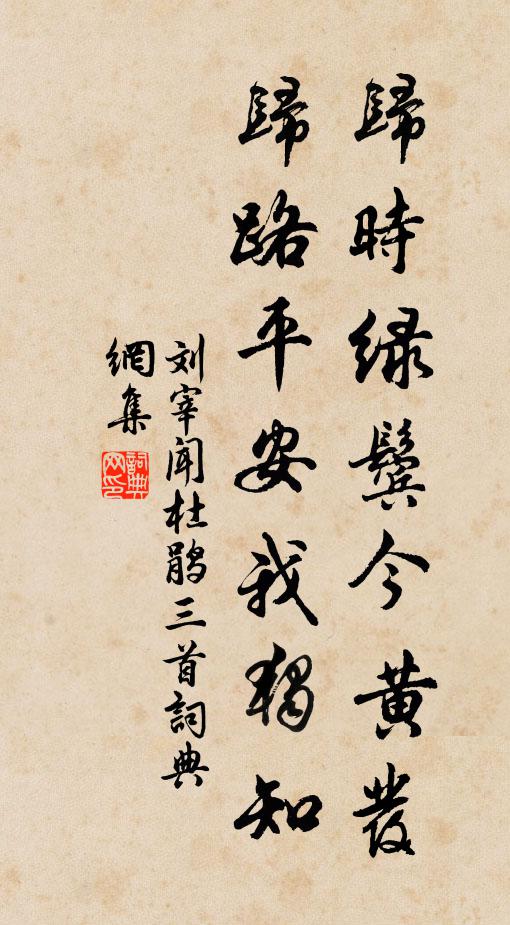 歸時緑鬢今黄發
歸路平安我獨知
刘宰闻杜鹃三首詞典
網集
詞典网印